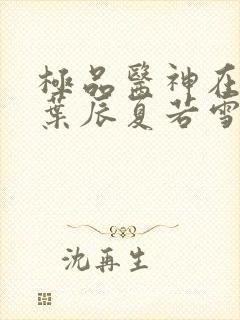 極品醫神在
葉辰夏若雪
沈再生